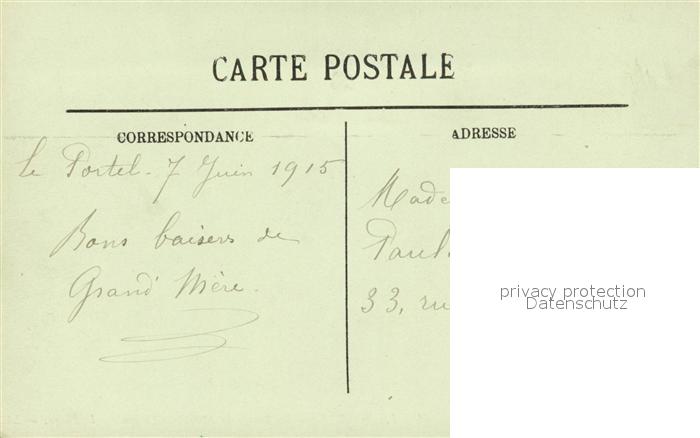 CARTE POSTALE
CORRESPONDANCE
ADRESSE
le Portel - 7 Juin 1915
Bons baisers de
Grand' Mère.
33, ru
privacy protection
Datenschutz